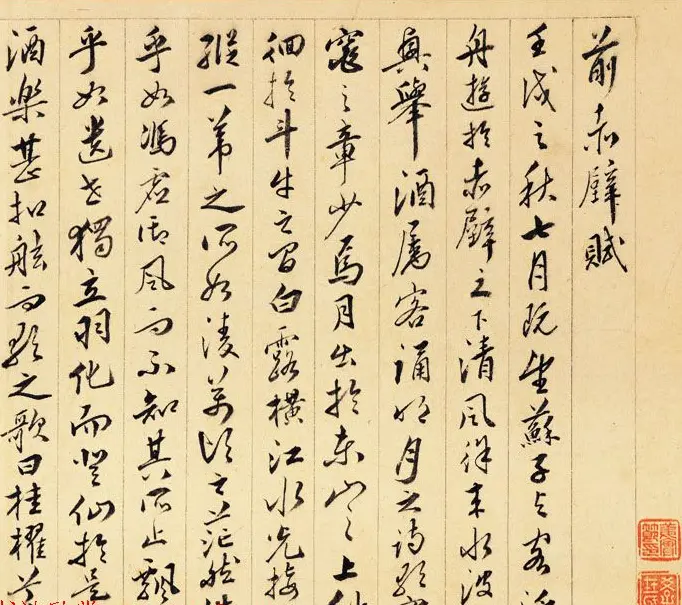 前赤壁賦
壬戌之秋七月既望蘇子與客泛
舟遊於赤壁之下清風徐來水波
興舉酒屬客誦明月之詩歌
窕之章少焉月出於東山之上
徊於斗牛之間白露橫江水光接
縱一葦之所如凌萬頃之茫然
乎如馮虛御風而不知其所止飄
乎如遺世獨立羽化而登仙於是
酒樂甚扣舷而歌之歌曰桂櫂兮